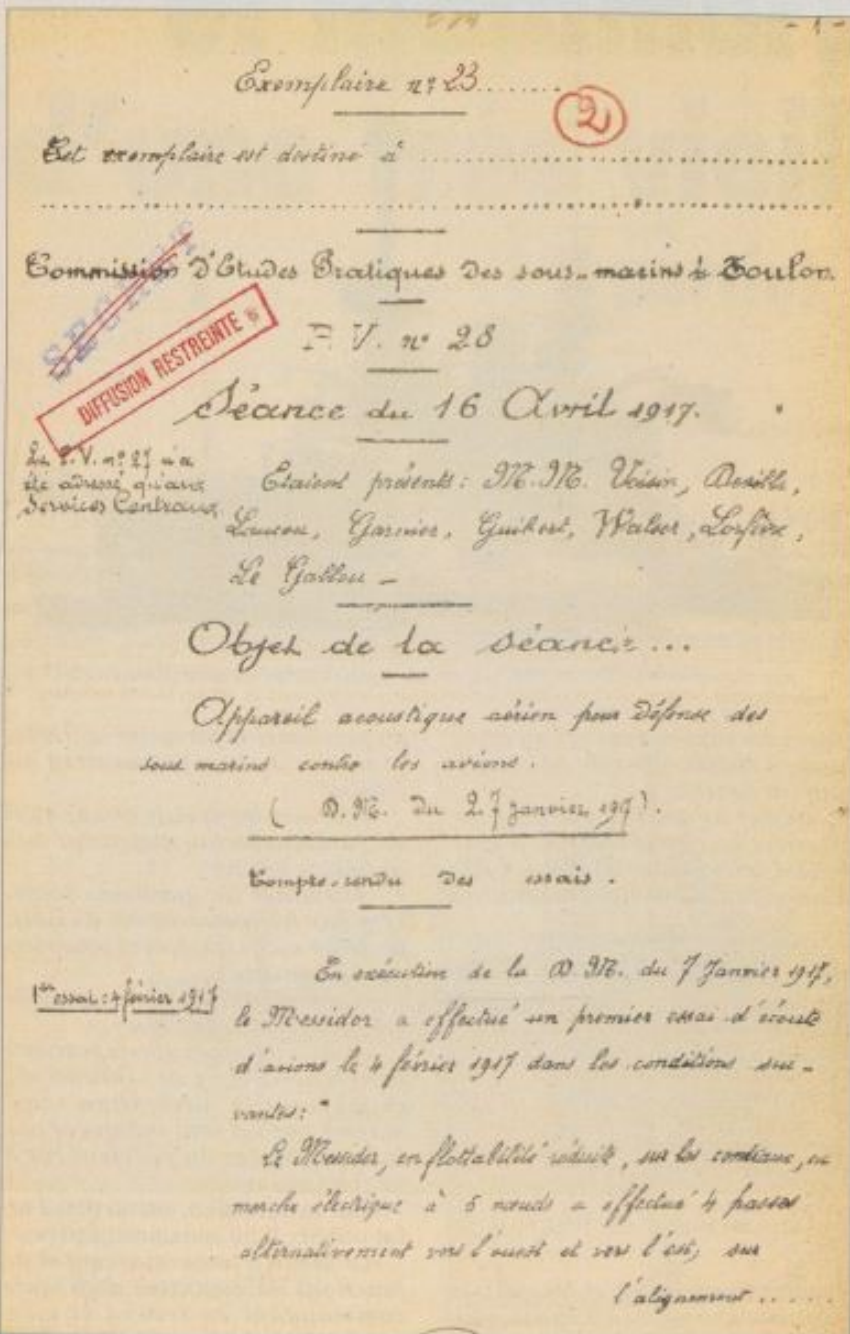 - 1 -
Exemplaire nº 23 ........
2
Cet exemplaire est destiné à ........................
........................
Commission d'Etudes Pratiques des sous-marins de Toulon.
SECRET
DIFFUSION RESTREINTE
P. V. nº 28
Séance du 16 Avril 1917.
Le P.V. nº 27 n'a
été adressé qu'aux
Services Centraux
Etaient présents : M.M. Voisin, Deville,
Garnier, Guibert, Walser,
Le Gallou -
Objet de la séance ...
Appareil acoustique aérien pour défense des
sous marins contre les avions.
( D.M. du 27 janvier 1917 ).
Compte-rendu des essais.
1er essai : 4 février 1917
En exécution de la D.M. du 7 Janvier 1917,
le Messidor a effectué un premier essai d'écoute
d'avions le 4 février 1917 dans les conditions sui-
vantes :
Le Messidor, en flottabilité réduite, sur les
marche électrique à 5 nœuds a effectué 4 passes
alternativement vers l'ouest et vers l'est, sur
l'alignement .....